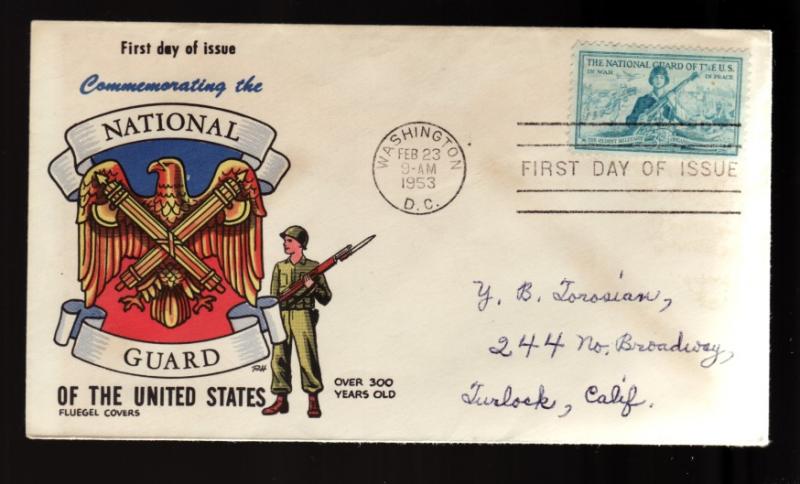 First day of issue
Commemorating the
NATIONAL
GUARD
OF THE UNITED STATES
FLUEGEL COVERS
OVER 300
YEARS OLD
WASHINGTON
FEB 23
9-AM
1953
D.C.
THE NATIONAL GUARD OF THE U.S.
IN WAR
IN PEACE
FIRST DAY OF ISSUE
Y. B. Torosian,
244 No. Broadway,
Turlock, Calif.